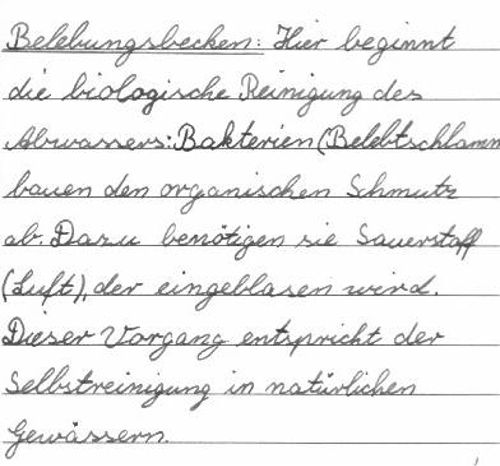 Belebungsbecken: Hier beginnt
die biologische Reinigung des
Abwassers: Bakterien (Belebtschlamm
bauen den organischen Schmutz
ab. Dazu benötigen sie Sauerstoff
(Luft), der eingeblasen wird.
Dieser Vorgang entspricht der
Selbstreinigung in natürlichen
Gewässern.